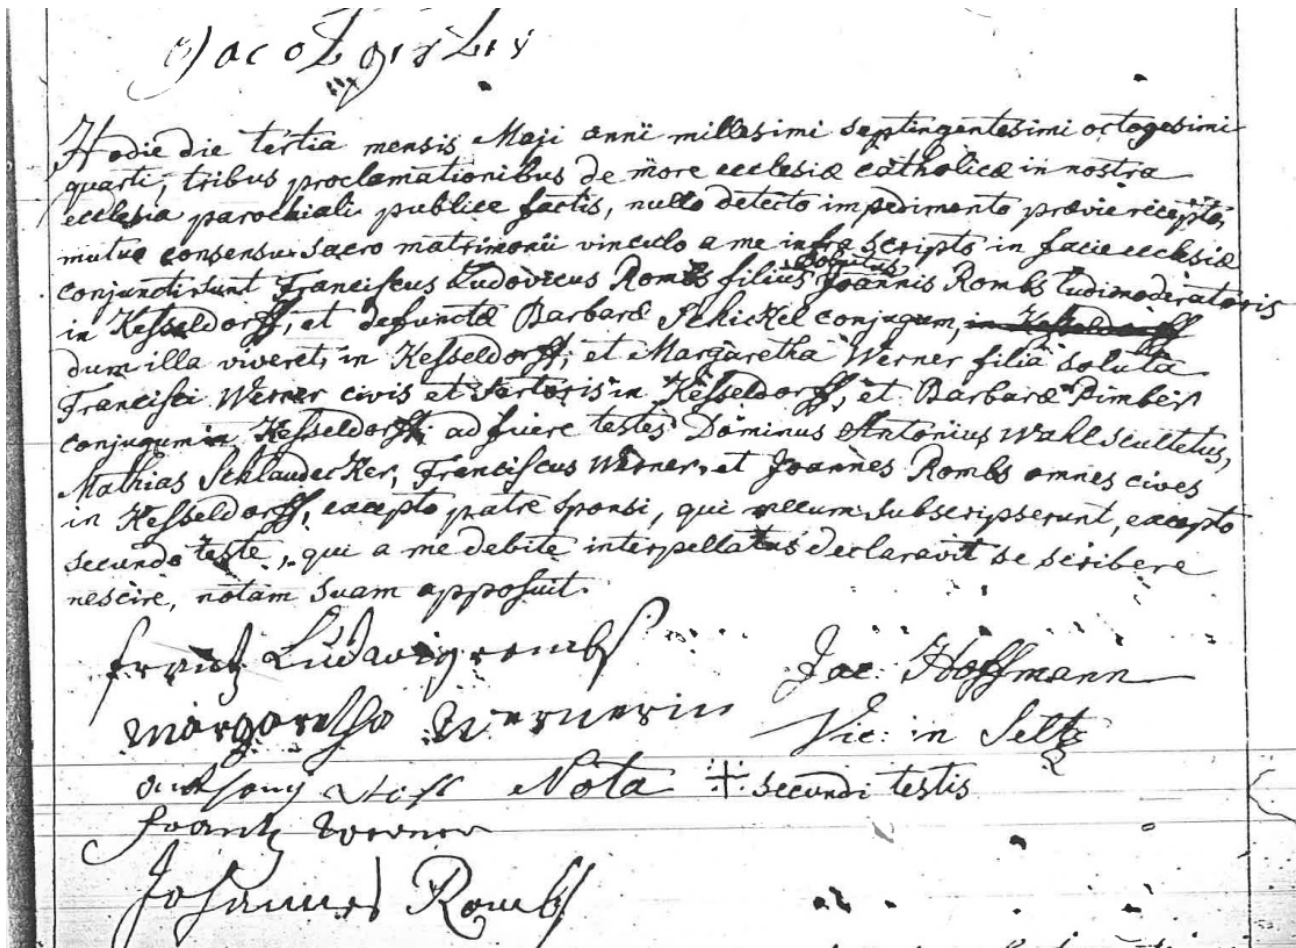 Hodie die tertia mensis Maji anni millesimi septingentesimi octogesimi
quarti, tribus proclamationibus de more ecclesiæ catholicæ in nostra
ecclesia parochiali publice factis, nullo detecto impedimento prævie recepto,
mutuo consensu sacro matrimonii vinculo a me infra scripto in facie ecclesiæ
conjuncti sunt Franciscus Ludovicus Rombs filius solutus Joannis Rombs ludimoderatoris
in Kesseldorff, et defunctæ Barbaræ Schickel conjugum, in Kesseldorff
dum illa viveret, in Kesseldorff, et Margaretha Werner filia soluta
Francisci Werner civis et sartoris in Kesseldorff, et Barbaræ
conjugum in Kesseldorff, ad fuere testes Dominus Antonius Wahl scultetus,
Mathias Schlaudecker, Franciscus Werner, et Joannes Rombs omnes cives
in Kesseldorff, excepto patre sponsi, qui mecum subscripserunt, excepto
secundo teste, qui a me debite interpellatus declaravit se scribere
nescire, notam suam apposuit.
frantz Ludwig rombs Jac: Hoffmann
Margaretha Wernerin Vic: in Seltz
anthony Nota + secundi testis
frantz werner
Johannes Rombs